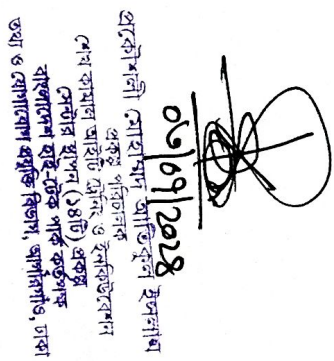 ০৩/০৭/২০২৪
প্রকৌশলী মোহাম্মদ আতিকুল ইসলাম
প্রকল্প পরিচালক
শেখ কামাল আইটি ট্রেনিং ও ইনকিউবেশন
সেন্টার স্থাপন (১৪টি) প্রকল্প
বাংলাদেশ হাই-টেক পার্ক কর্তৃপক্ষ
তথ্য ও যোগাযোগ প্রযুক্তি বিভাগ, আগারগাঁও, ঢাকা